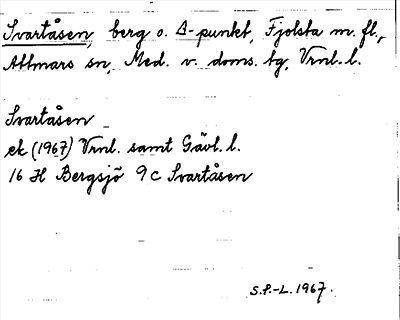 Svartåsen, berg o. Δ-punkt, Fjolsta m. fl.,
Attmars sn, Med. v. doms. tg, Vrnl. l.
Svartåsen
ek (1967) Vrnl. samt Gävl. l.
16 H Bergsjö 9 c Svartåsen
S.P.-L. 1967.